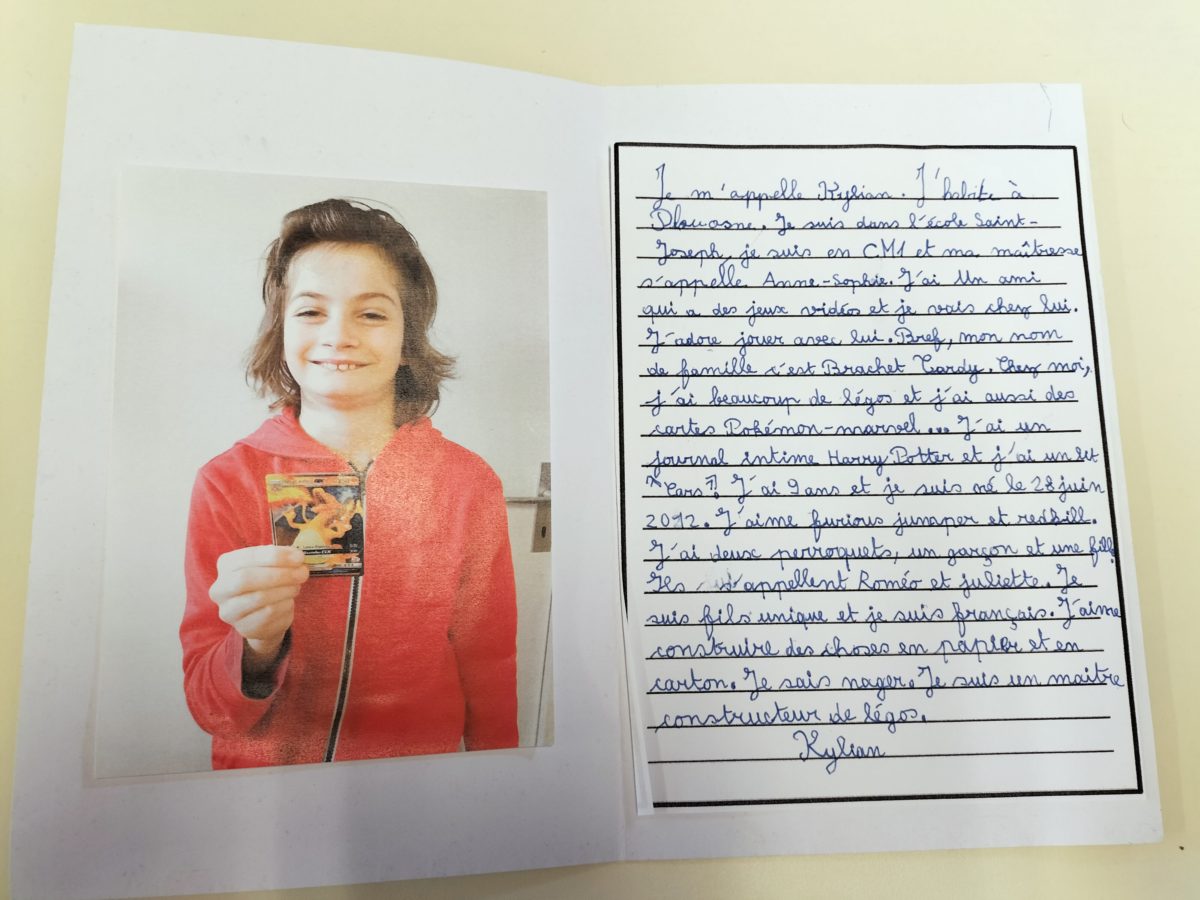 Je m'appelle Kylian. J'habite à
Plouasne. Je suis dans l'école Saint-
Joseph, je suis en CM1 et ma maîtresse
s'appelle Anne-Sophie. J'ai Un ami
qui a des jeux vidéos et je vais chez lui.
J'adore jouer avec lui. Bref, mon nom
de famille c'est Brachet Tardy. Chez moi,
j'ai beaucoup de légos et j'ai aussi des
cartes Pokémon-marvel... J'ai un
journal intime Harry Potter et j'ai un set
"Cars". J'ai 9 ans et je suis né le 28 juin
2012. J'aime furious jumper et redkill.
J'ai deux perroquets, un garçon et une fille
Ils s'appellent Roméo et juliette. Je
suis fils unique et je suis français. J'aime
construire des choses en papier et en
carton. Je sais nager. Je suis un maitre
constructeur de légos.
Kylian